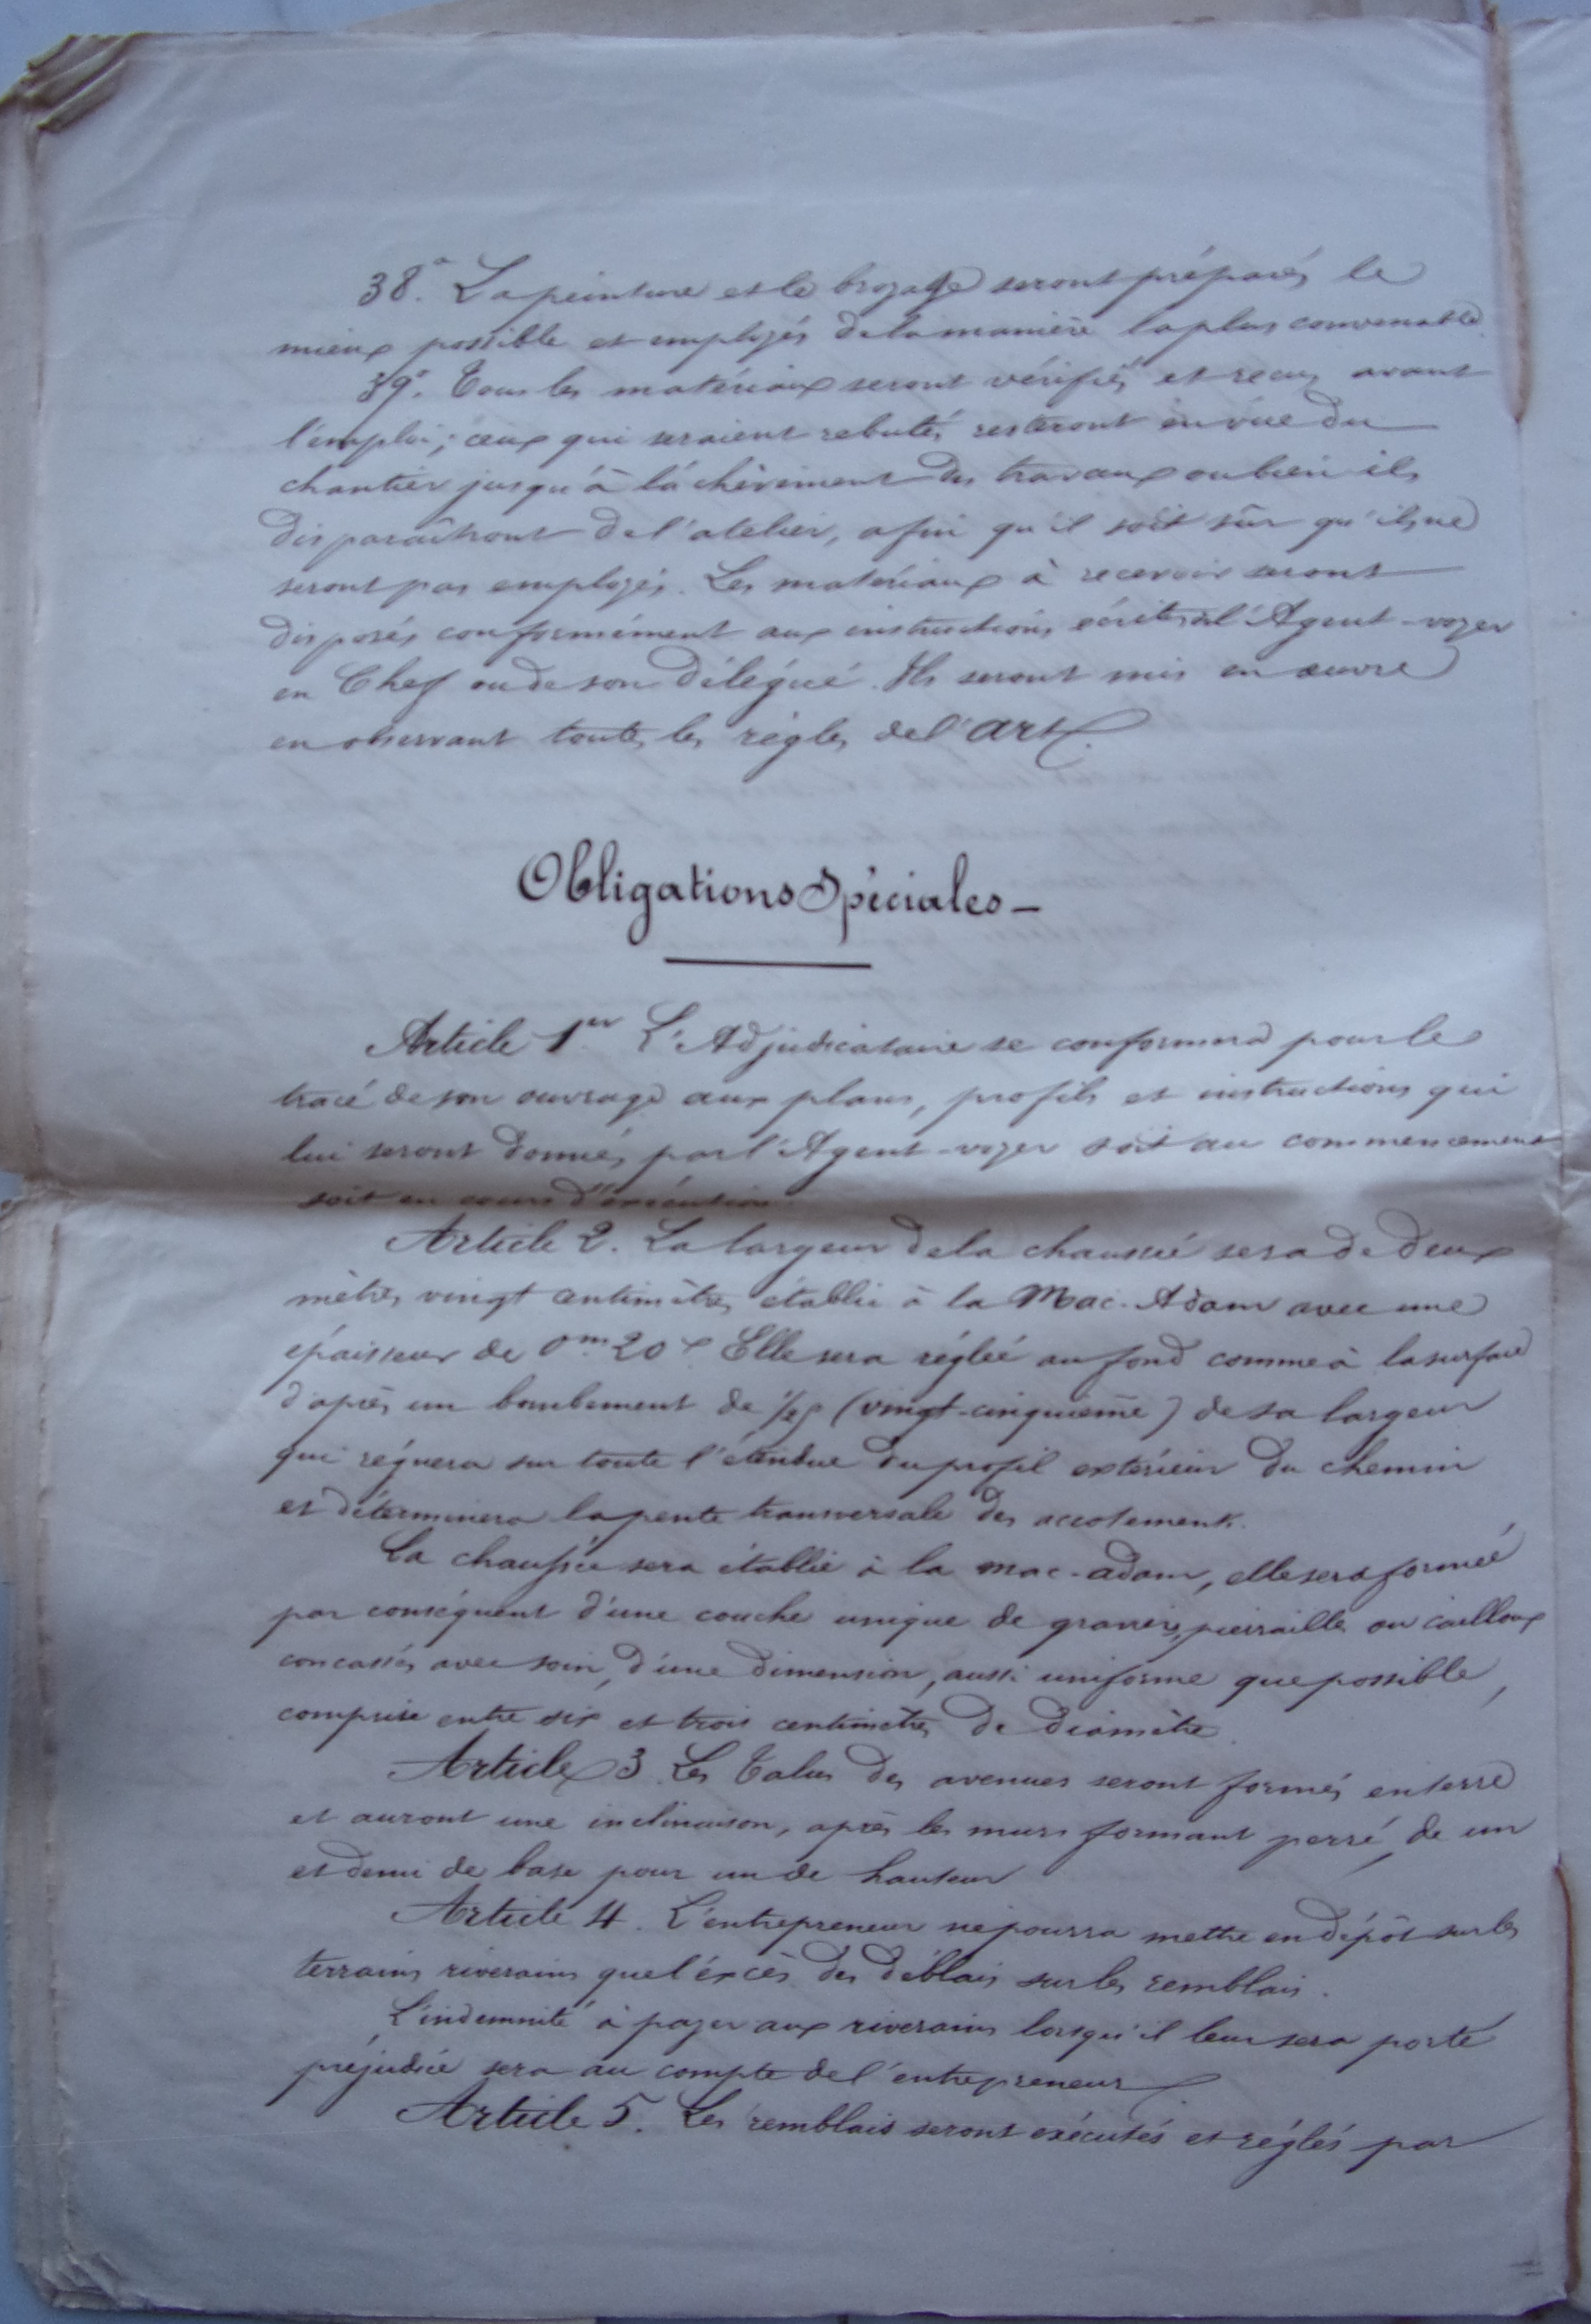 38°. La peinture et le broyage seront préparés le
mieux possible et employés de la manière la plus convenable.
39°. Tous les matériaux seront vérifiés et reçus avant
l'emploi; ceux qui seraient rebutés resteront en vue du
chantier jusqu'à l'achèvement des travaux ou bien ils
disparaîtront de l'atelier, afin qu'il soit sûr qu'ils ne
seront pas employés. Les matériaux à recevoir seront
disposés conformément aux instructions écrites de l'Agent-voyer
en Chef ou de son Délégué. Ils seront mis en œuvre
en observant toutes les règles de l'art.
Obligations Spéciales –
Article 1er L'Adjudicataire se conformera pour le
tracé de son ouvrage aux plans, profils et instructions qui
lui seront donnés par l'Agent-voyer soit au commencement
soit en cours d'exécution.
Article 2. La largeur de la chaussée sera de deux
mètres vingt centimètres établie à la Mac-Adam avec une
épaisseur de 0m20c. Elle sera réglée au fond comme à la surface
d'après un bombement de 1/25 (vingt-cinquième) de sa largeur
qui régnera sur toute l'étendue du profil extérieur du chemin
et déterminera la pente transversale des accotements.
La chaussée sera établie à la mac-adam, elle sera formée
par conséquent d'une couche unique de graviers, pierrailles ou cailloux
concassés avec soin, d'une dimension, aussi uniforme que possible,
comprise entre six et trois centimètres de diamètre.
Article 3. Les Talus des avenues seront formés en terre
et auront une inclinaison, après les murs formant perré, de un
et demi de base pour un de hauteur
Article 4. L'entrepreneur ne pourra mettre en dépôt sur les
terrains riverains que l'excès des déblais sur les remblais.
L'indemnité à payer aux riverains lorsqu'il leur sera porté
préjudice sera au compte de l'entrepreneur.
Article 5. Les remblais seront exécutés et réglés par